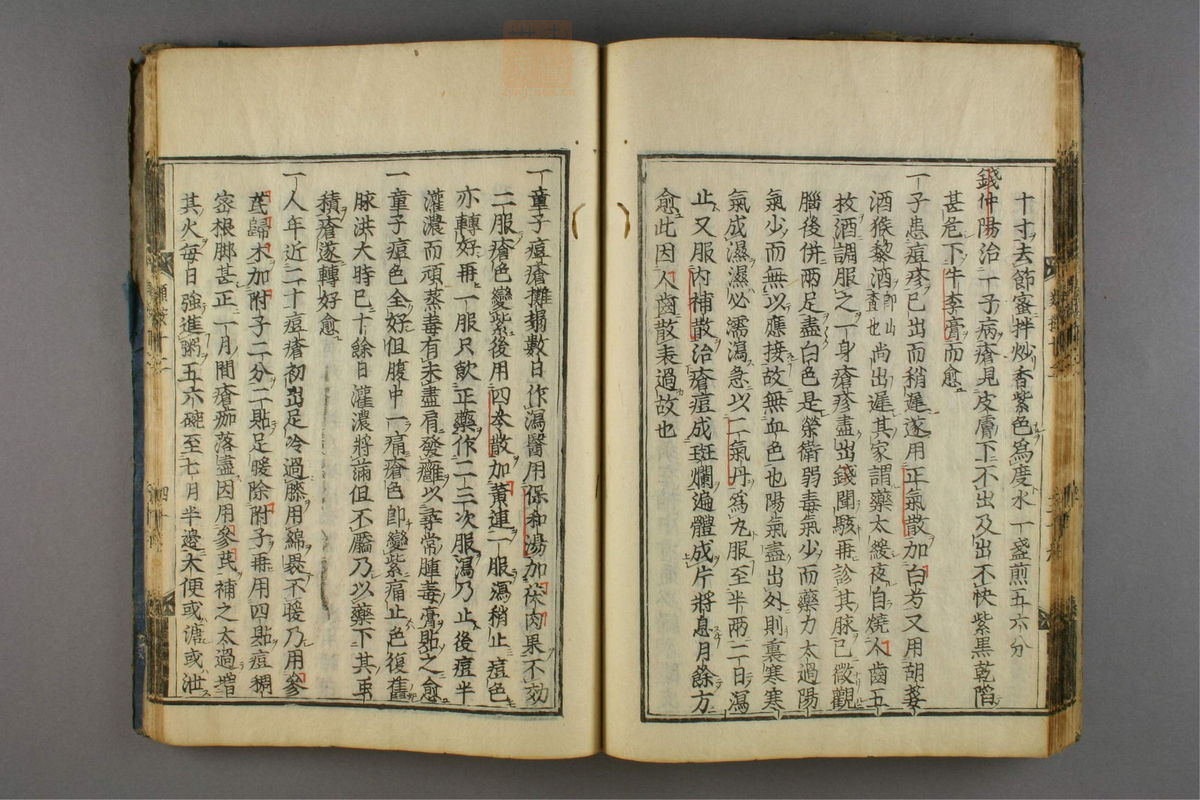 十寸去節蜜拌炒香紫色為度水一盞煎五六分
錢仲陽治一子病瘡見皮膚下不出及出不快紫黑乾陷
甚危下牛李膏而愈
一子患痘疹已出而稍遲遂用正氣散加白芍又用胡荽
酒猴梨酒即山查也尚出遲其家謂藥太緩夜自燒人齒五
枚酒調服之一身瘡疹盡出錢聞駭再診其脉已微觀
腦後併兩足盡白色是榮衛弱毒氣少而藥力太過陽
氣少而無以應接故無血色也陽氣盡出外則裏寒寒
氣成濕濕必濡瀉急以二氣丹為丸服至半兩二日瀉
止又服内補散治瘡痘成斑爛遍體成片將息月餘方
愈此因人齒散表過故也
一童子痘瘡攤塌數日作瀉醫用保和湯加茯肉果不効
二服瘡色變紫後用四苓散加黄連一服瀉稍止痘色
亦轉好再一服只飲正藥作二三次服瀉乃止後痘半
灌濃而頑蒸毒有未盡肩發癰以尋常腫毒膏貼之愈
一童子痘色全好但腹中一痛瘡色即變紫痛止色復舊
脉洪大時已十餘日灌濃將滿但不靨乃以藥下其
積瘡遂轉好愈
一人年近二十痘瘡初出足冷過膝用綿褁不暖乃用參
芪歸木加附子二分二貼足暖除附子再用四貼痘稠
密根脚甚正一月間瘡痂落盡因用參芪補之太過增
其火每日強進粥五六碗至七月半邊大便或溏或泄